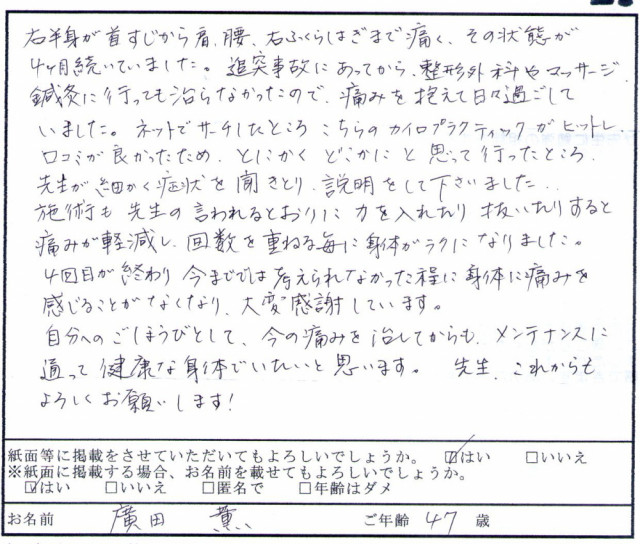 右半身が首すじから肩、腰、右ふくらはぎまで痛く、その状態が
4ヶ月続いていました。追突事故にあってから、整形外科やマッサージ、
鍼灸に行っても治らなかったので、痛みを抱えて日々過ごして
いました。ネットでサーチしたところ こちらのカイロプラクティックがヒットし、
口コミが良かったため、とにかく どこかにと思って行ったところ、
先生が細かく症状を聞きとり、説明をして下さいました。
施術も先生の言われるとおりに力を入れたり抜いたりすると
痛みが軽減し、回数を重ねる毎に身体がラクになりました。
4回目が終わり今まででは考えられなかった程に身体に痛みを
感じることがなくなり、大変感謝しています。
自分へのごほうびとして、今の痛みを治してからも、メンテナンスに
通って健康な身体でいたいと思います。 先生、これからも
よろしくお願いします!
紙面等に掲載をさせていただいてもよろしいでしょうか。 ☑はい □いいえ
※紙面に掲載する場合、お名前を載せてもよろしいでしょうか。
☑はい □いいえ □匿名で □年齢はダメ
お名前 廣田 薫 ご年齢 47 歳